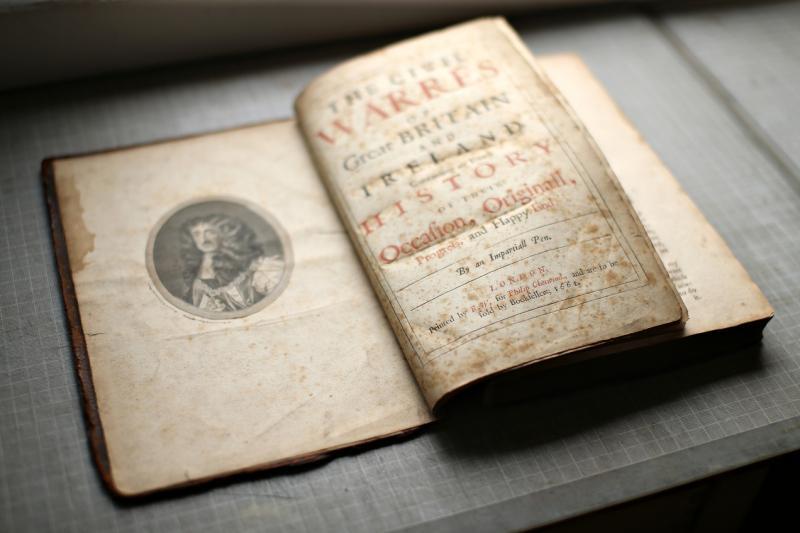 THE CIVIL
WARRES
OF
Great BRITAIN
AND
IRELAND
HISTORY
OF THEIR
Occaſion, Originall,
Progreſs, and Happy End.
By an Impartiall Pen.
LONDON,
Printed by R.W. for Philip Chetwind, and are to be
ſold by Bookſellers, 1661.